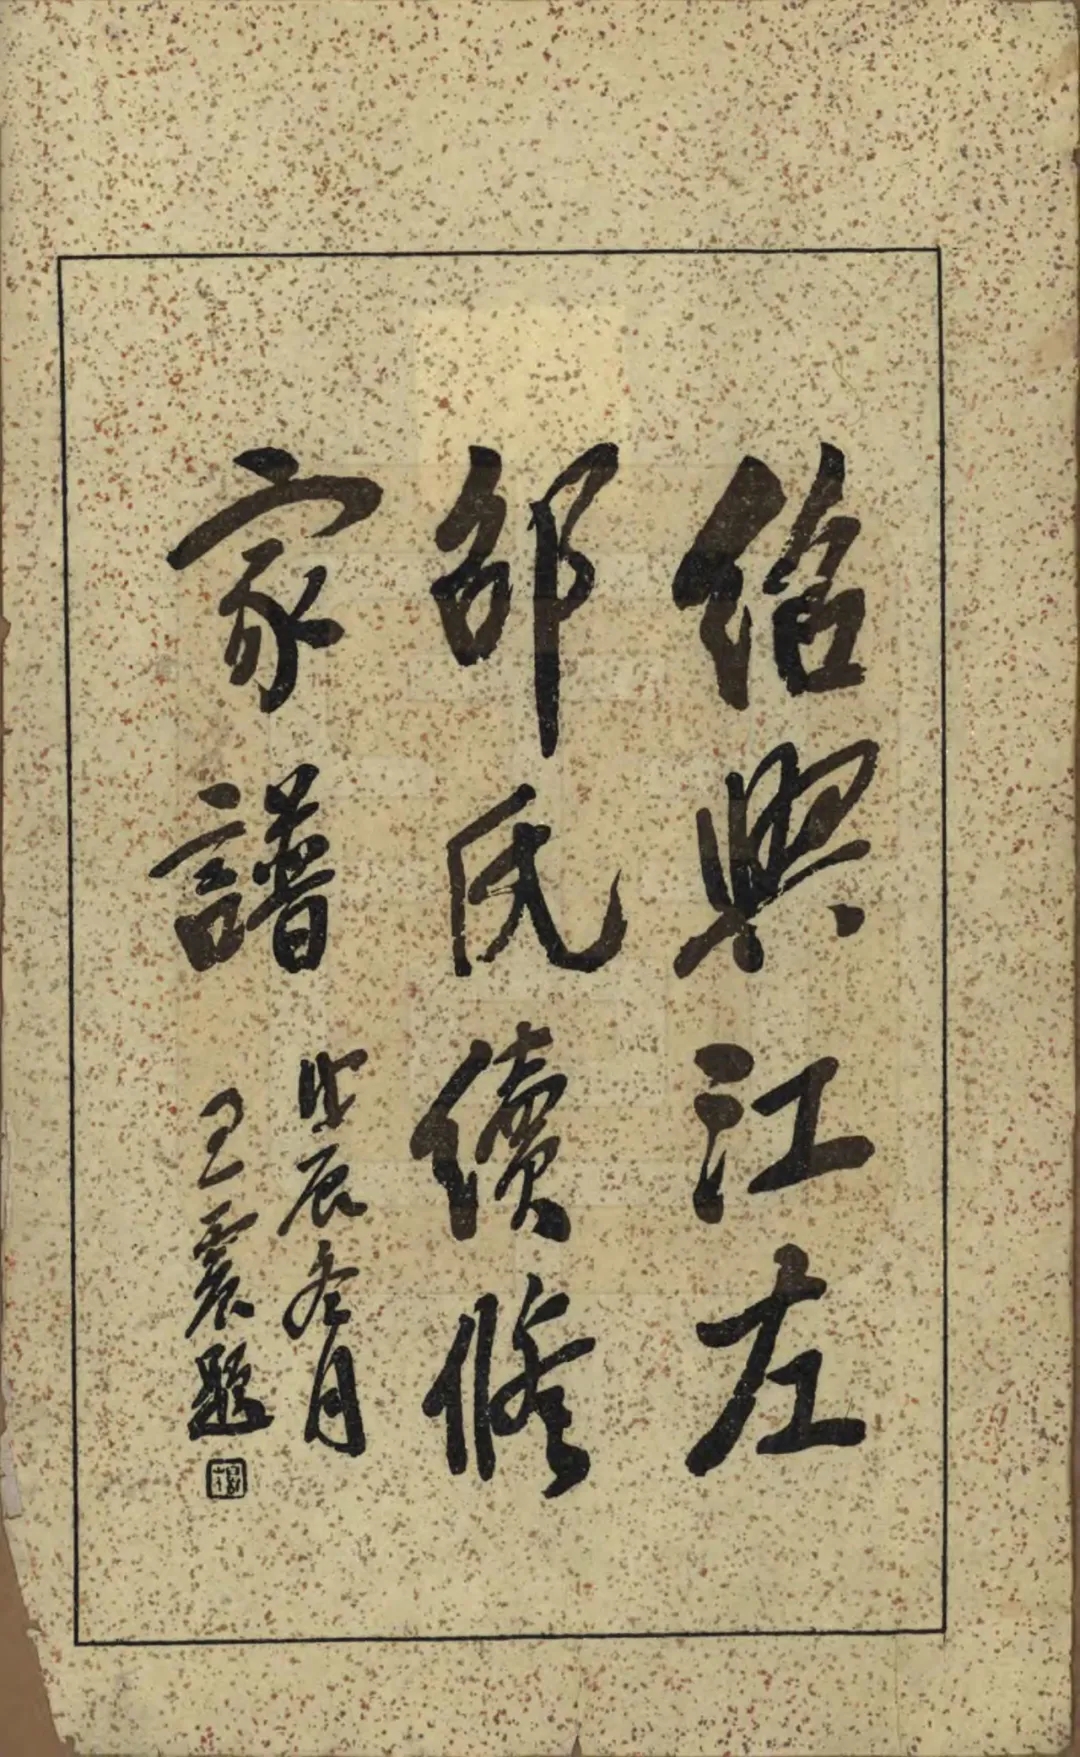 紹興江左
邵氏續修
家譜
戊辰冬月
王震題